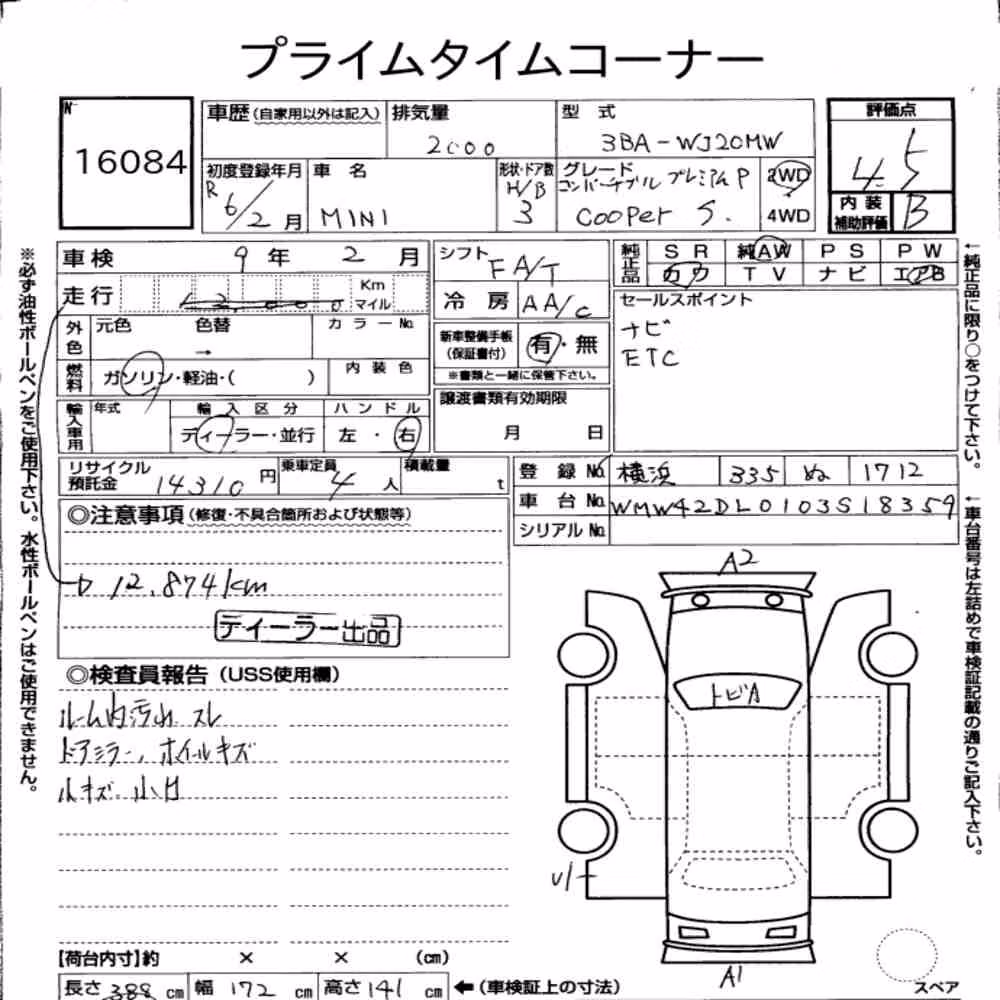 プライムタイムコーナー
No
16084
車歴 (自家用以外は記入)
排気量
2000
型 式
3BA-WJ20MW
評価点
4.5
初度登録年月
R6/2月
車 名
MINI
形状・ドア数
H/B
3
グレード
コンバーチブル プレミアムP
COOPER S.
2WD
4WD
内装
補助評価
B
車検
9年 2月
走行
12,000
Km
マイル
外色
元色
色替
→
カラーNo.
燃料
ガソリン・軽油・( )
内装色
輸入車用
年式
輸入区分
ディーラー・並行
ハンドル
左・右
シフト
FA/T
冷房
AA/C
新車整備手帳
(保証書付)
有・無
※書類と一緒に保管下さい。
譲渡書類有効期限
月 日
純正品
SR
純AW
PS
PW
カワ
TV
ナビ
エアB
セールスポイント
ナビ
ETC
リサイクル
預託金
14310円
乗車定員
4人
積載量
t
登録No.
横浜
335
ぬ
1712
車台No.
WMW42DL0103S18359
シリアルNo.
◎注意事項 (修復・不具合箇所および状態等)
12,874km
ディーラー出品
◎検査員報告 (USS使用欄)
ルーム内汚れ スレ
ドアミラー、ホイルキズ
小キズ 小凹
A2
トビA
A1
スペア
【荷台内寸】約 × × (cm)
長さ 388 cm
幅 172 cm
高さ 141 cm
←(車検証上の寸法)
※必ず油性ボールペンをご使用下さい。水性ボールペンはご使用できません。
←純正品に限り○をつけて下さい。
←車台番号は左詰めで車検証記載の通りご記入下さい。